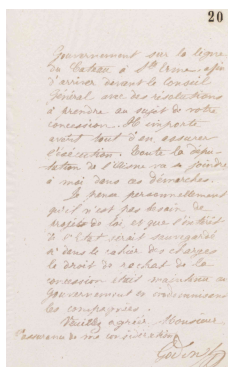 20
Gouvernement sur la ligne
du Cateau à St Erme afin
d'arriver devant le Conseil
Général avec des résolutions
à prendre au sujet de votre
concession. Il importe
avant tout d'en assurer
l'exécution. Toute la dépu-
tation de l'Aisne va se joindre
à moi dans ces démarches.
Je pense personnellement
qu'il n'est pas besoin de
projets de loi et que l'intérêt
de l'Etat serait sauvegardé
si dans le cahier des charges
le droit de rachat de la
concession était maintenu au
Gouvernement en indemnisant
les compagnies.
Veuillez agréer Monsieur
l'assurance de ma considération